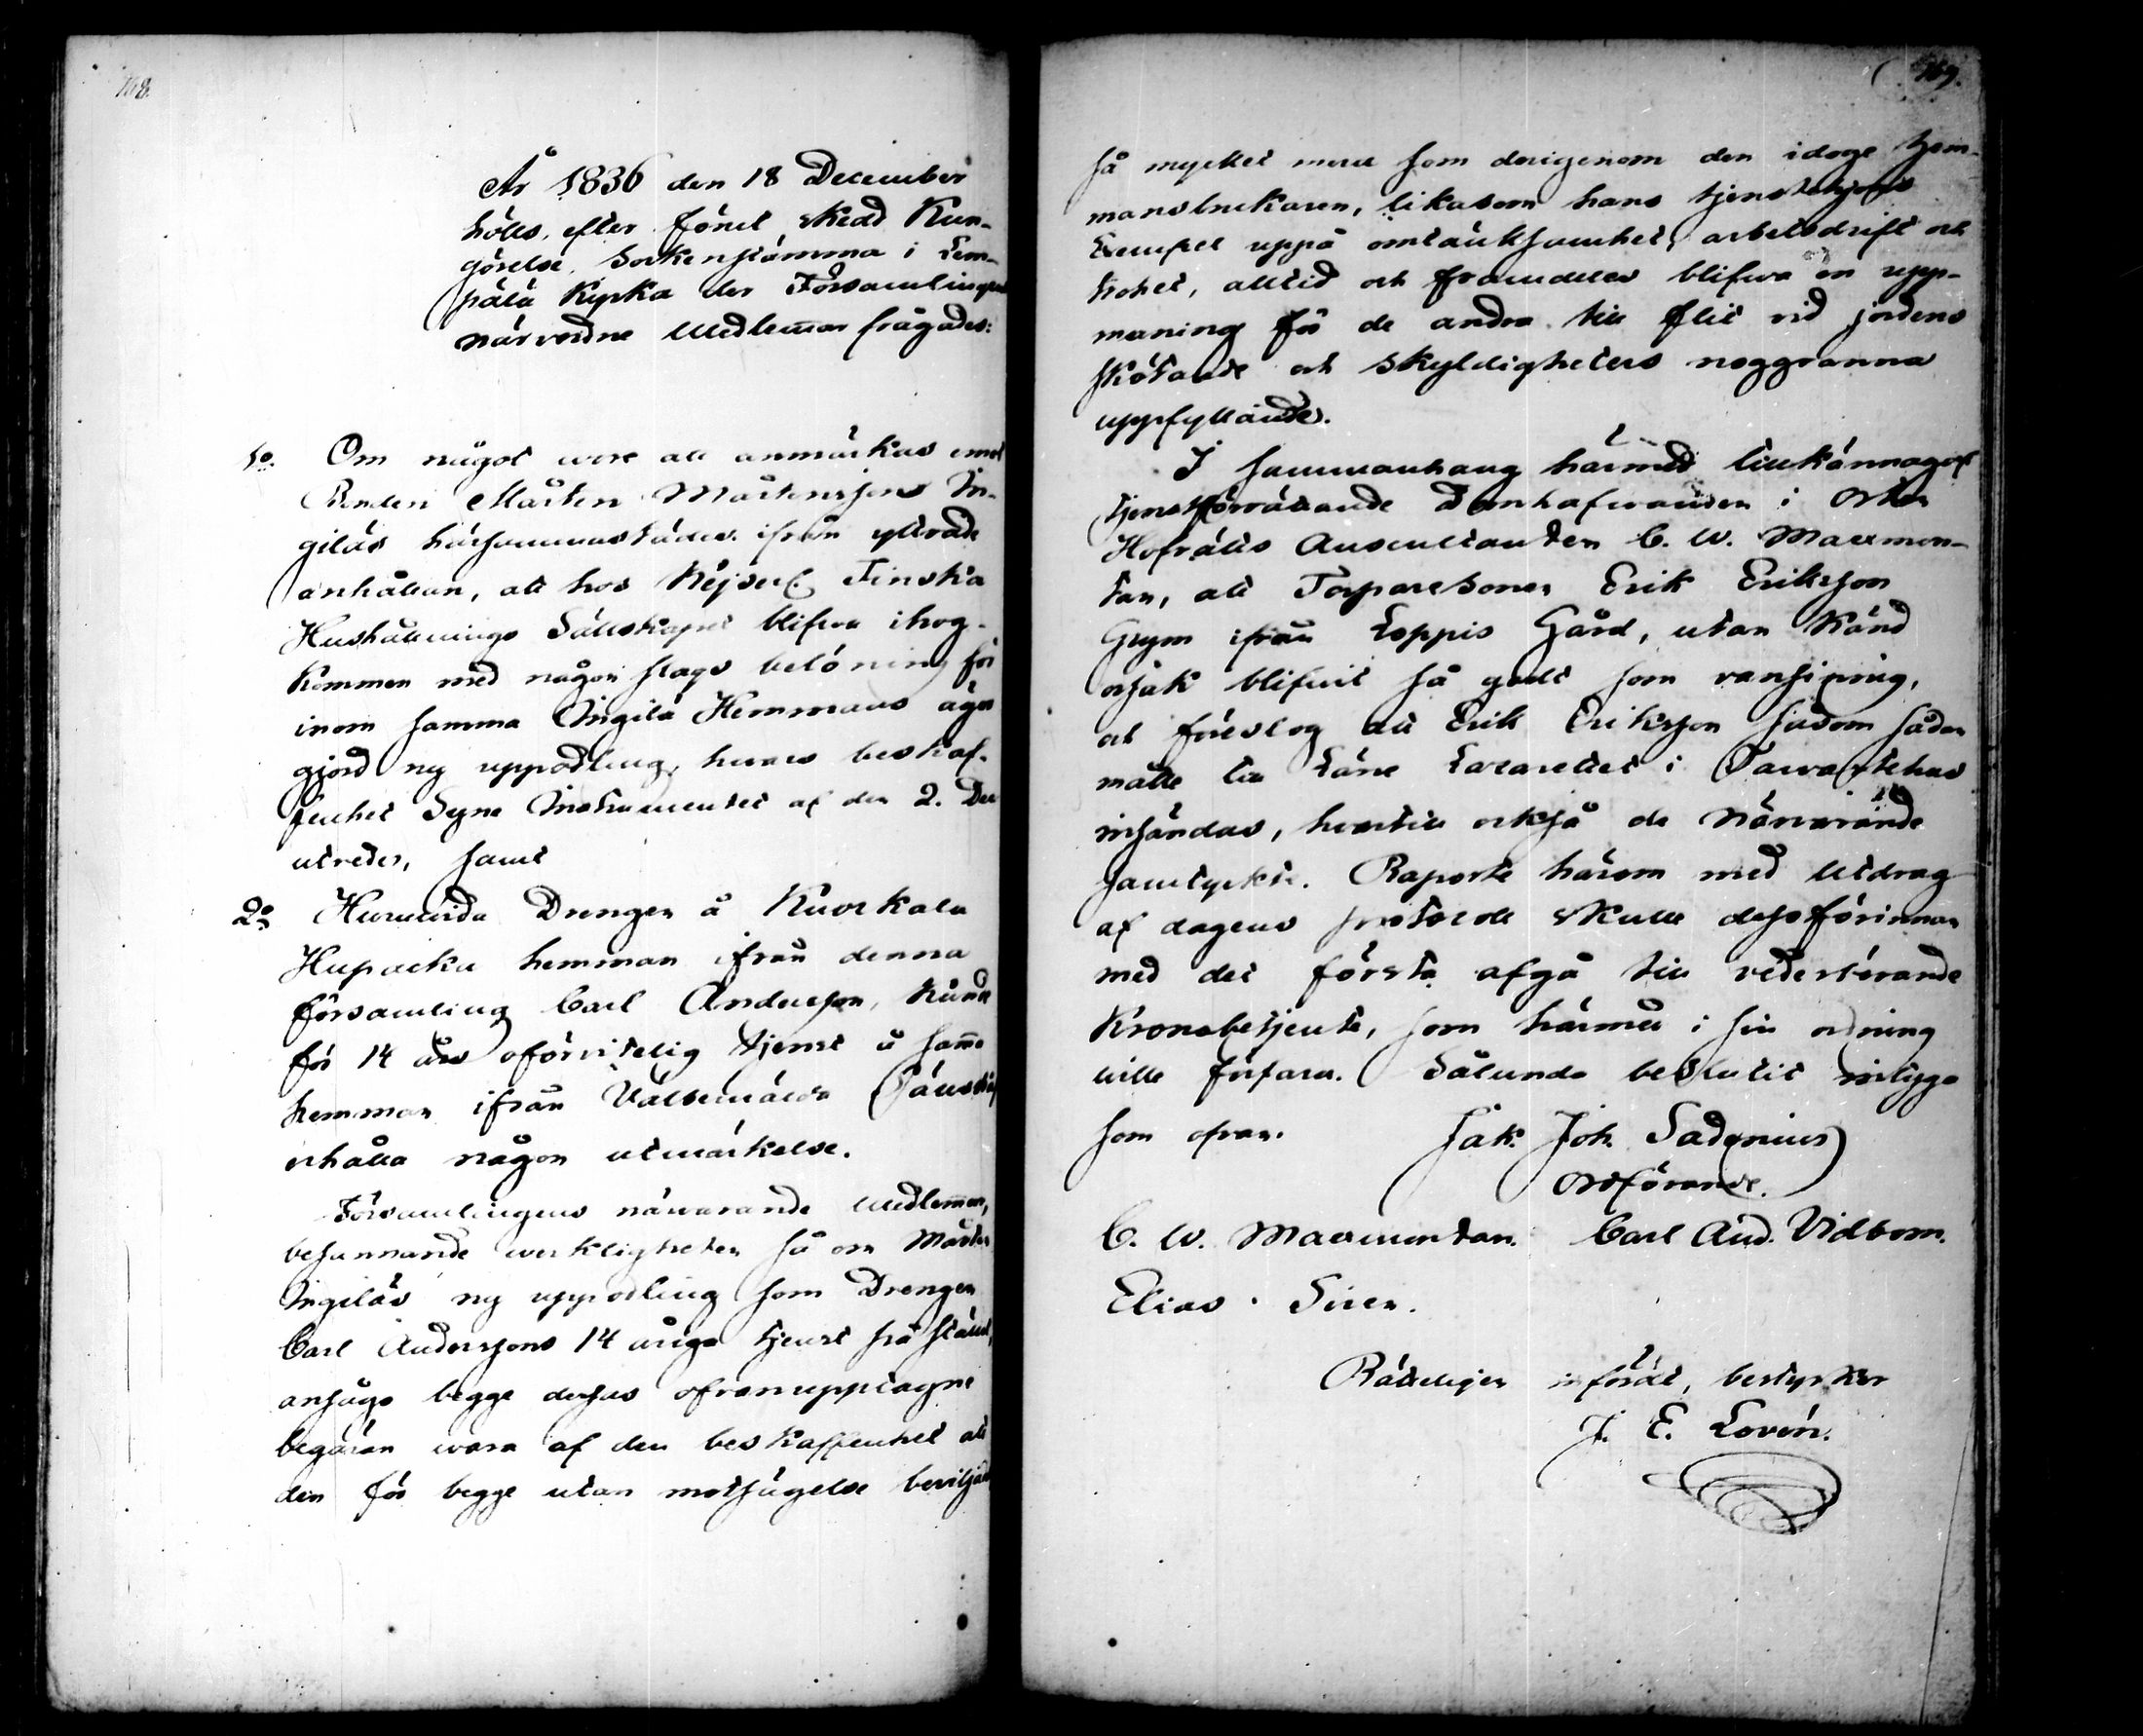 168.
År 1836 den 18 December
hölls, efter förut skedd Kun-
görelse, Sockenstämma i Lem-
pälä Kyrka der Församlingens
närvordne Medlem̄ar frågades:
1o. Om något wore att anmärkas emot
Bonden Mårten Mårtensson In-
giläs härsammastädes ifrån yttrade
anhållan, att hos Kejserl. Finska
Hushållnings Sällskapet blifwa ihog-
kommen med någon slags belöning för
inom samma Ingilä Hemmans ägor
gjord ny uppodling, hwars beskaf-
fenhet Syne Instrumentet af den 2. Dec
utreder, samt
2o Huruwida Drengen å Kuorkala
Hupacka hemman ifrån denna
församling Carl Andersson, kunde
för 14 års oförvitelig tjenst å sam̄a
hemman ifrån Vällernämda Sällskap
erhålla någon utmärkelse.
Församlingens närwarande Medlem̄ar,
besannande werkligheten så om Mårten
Ingiläs ny uppodling som Drengen
Carl Anderssons 14 åriga tjenst på ställe,
ansågo begge dessas ofvanupptagne
begäran wara af den beskaffenhet att
den för begge utan motsägelse beviljades
169.
så mycket mera som derigenom den idoge hem-
mansbrukaren, likasom hans tjenstehjons
Exempel uppå omtänksamhet, arbetsdrift och
trohet, alltid och framdeles blifwa en upp-
maning för de andra till flit vid jordens
skötande och skyldigheters noggranna
uppfyllande.
I sammanhang härmed tillkännagaf
tjenstförrättande Domhafwanden i Orten
Hofrätts Auscultanten C. W. Maexmon-
tan, att Torparesonen Erik Eriksson
Grym ifrån Loppis Gård, utan känd
orsak blifwit så godt som vansinnig,
och föreslog att Erik Eriksson såsom sådan
måtte till Läne Lazarettet i Tawastehus
insändas, hwartill ocksså de Närwarande
samtyckte. Raporte härom med Utdrag
af dagens protocoll skulle dessförinnan
med det första afgå till vederbörande
Kronobetjente, som härmed i sin ordning
wille förfara. Sålunda beslutit intyga
som ofvan. Jak. Joh. Sadenius
Ordförande.
C. W. Maexmontan. Carl And. Vidbom.
Elias Siren.
Rätteligen infördt, bestyrker
J. E. Lovén.